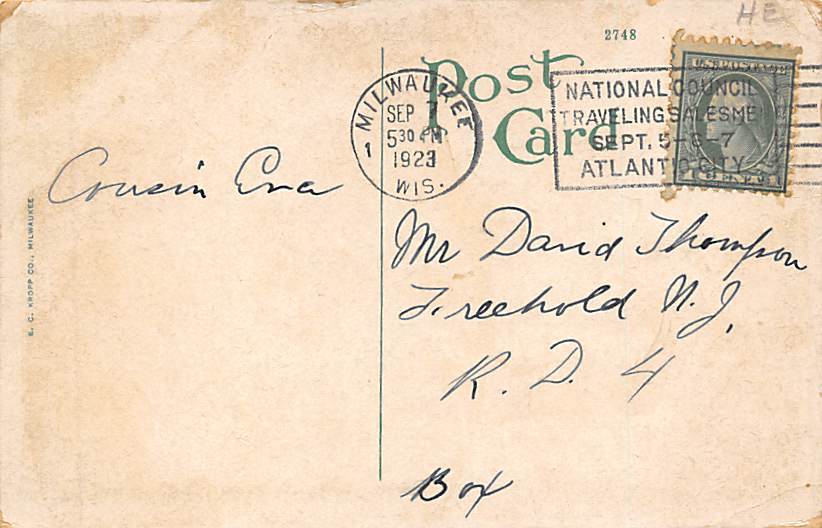 HE
2748
Post
Card
MILWAUKEE
SEP 7
5 30 PM
1923
1
WIS.
NATIONAL COUNCIL
TRAVELING SALESME
SEPT. 5-6-7
ATLANTIC CITY
U.S. POSTAGE
1 CENT 1
Cousin Eva
Mr David Thompson
Freehold N. J.
R. D. 4
Box
E. C. KROPP CO., MILWAUKEE